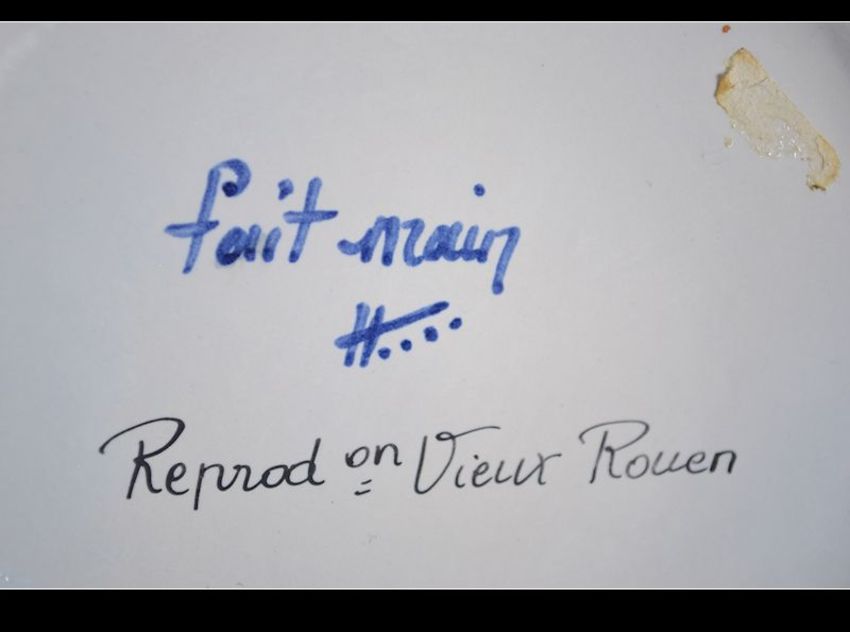 fait main
H....
Reprod on Vieux Rouen